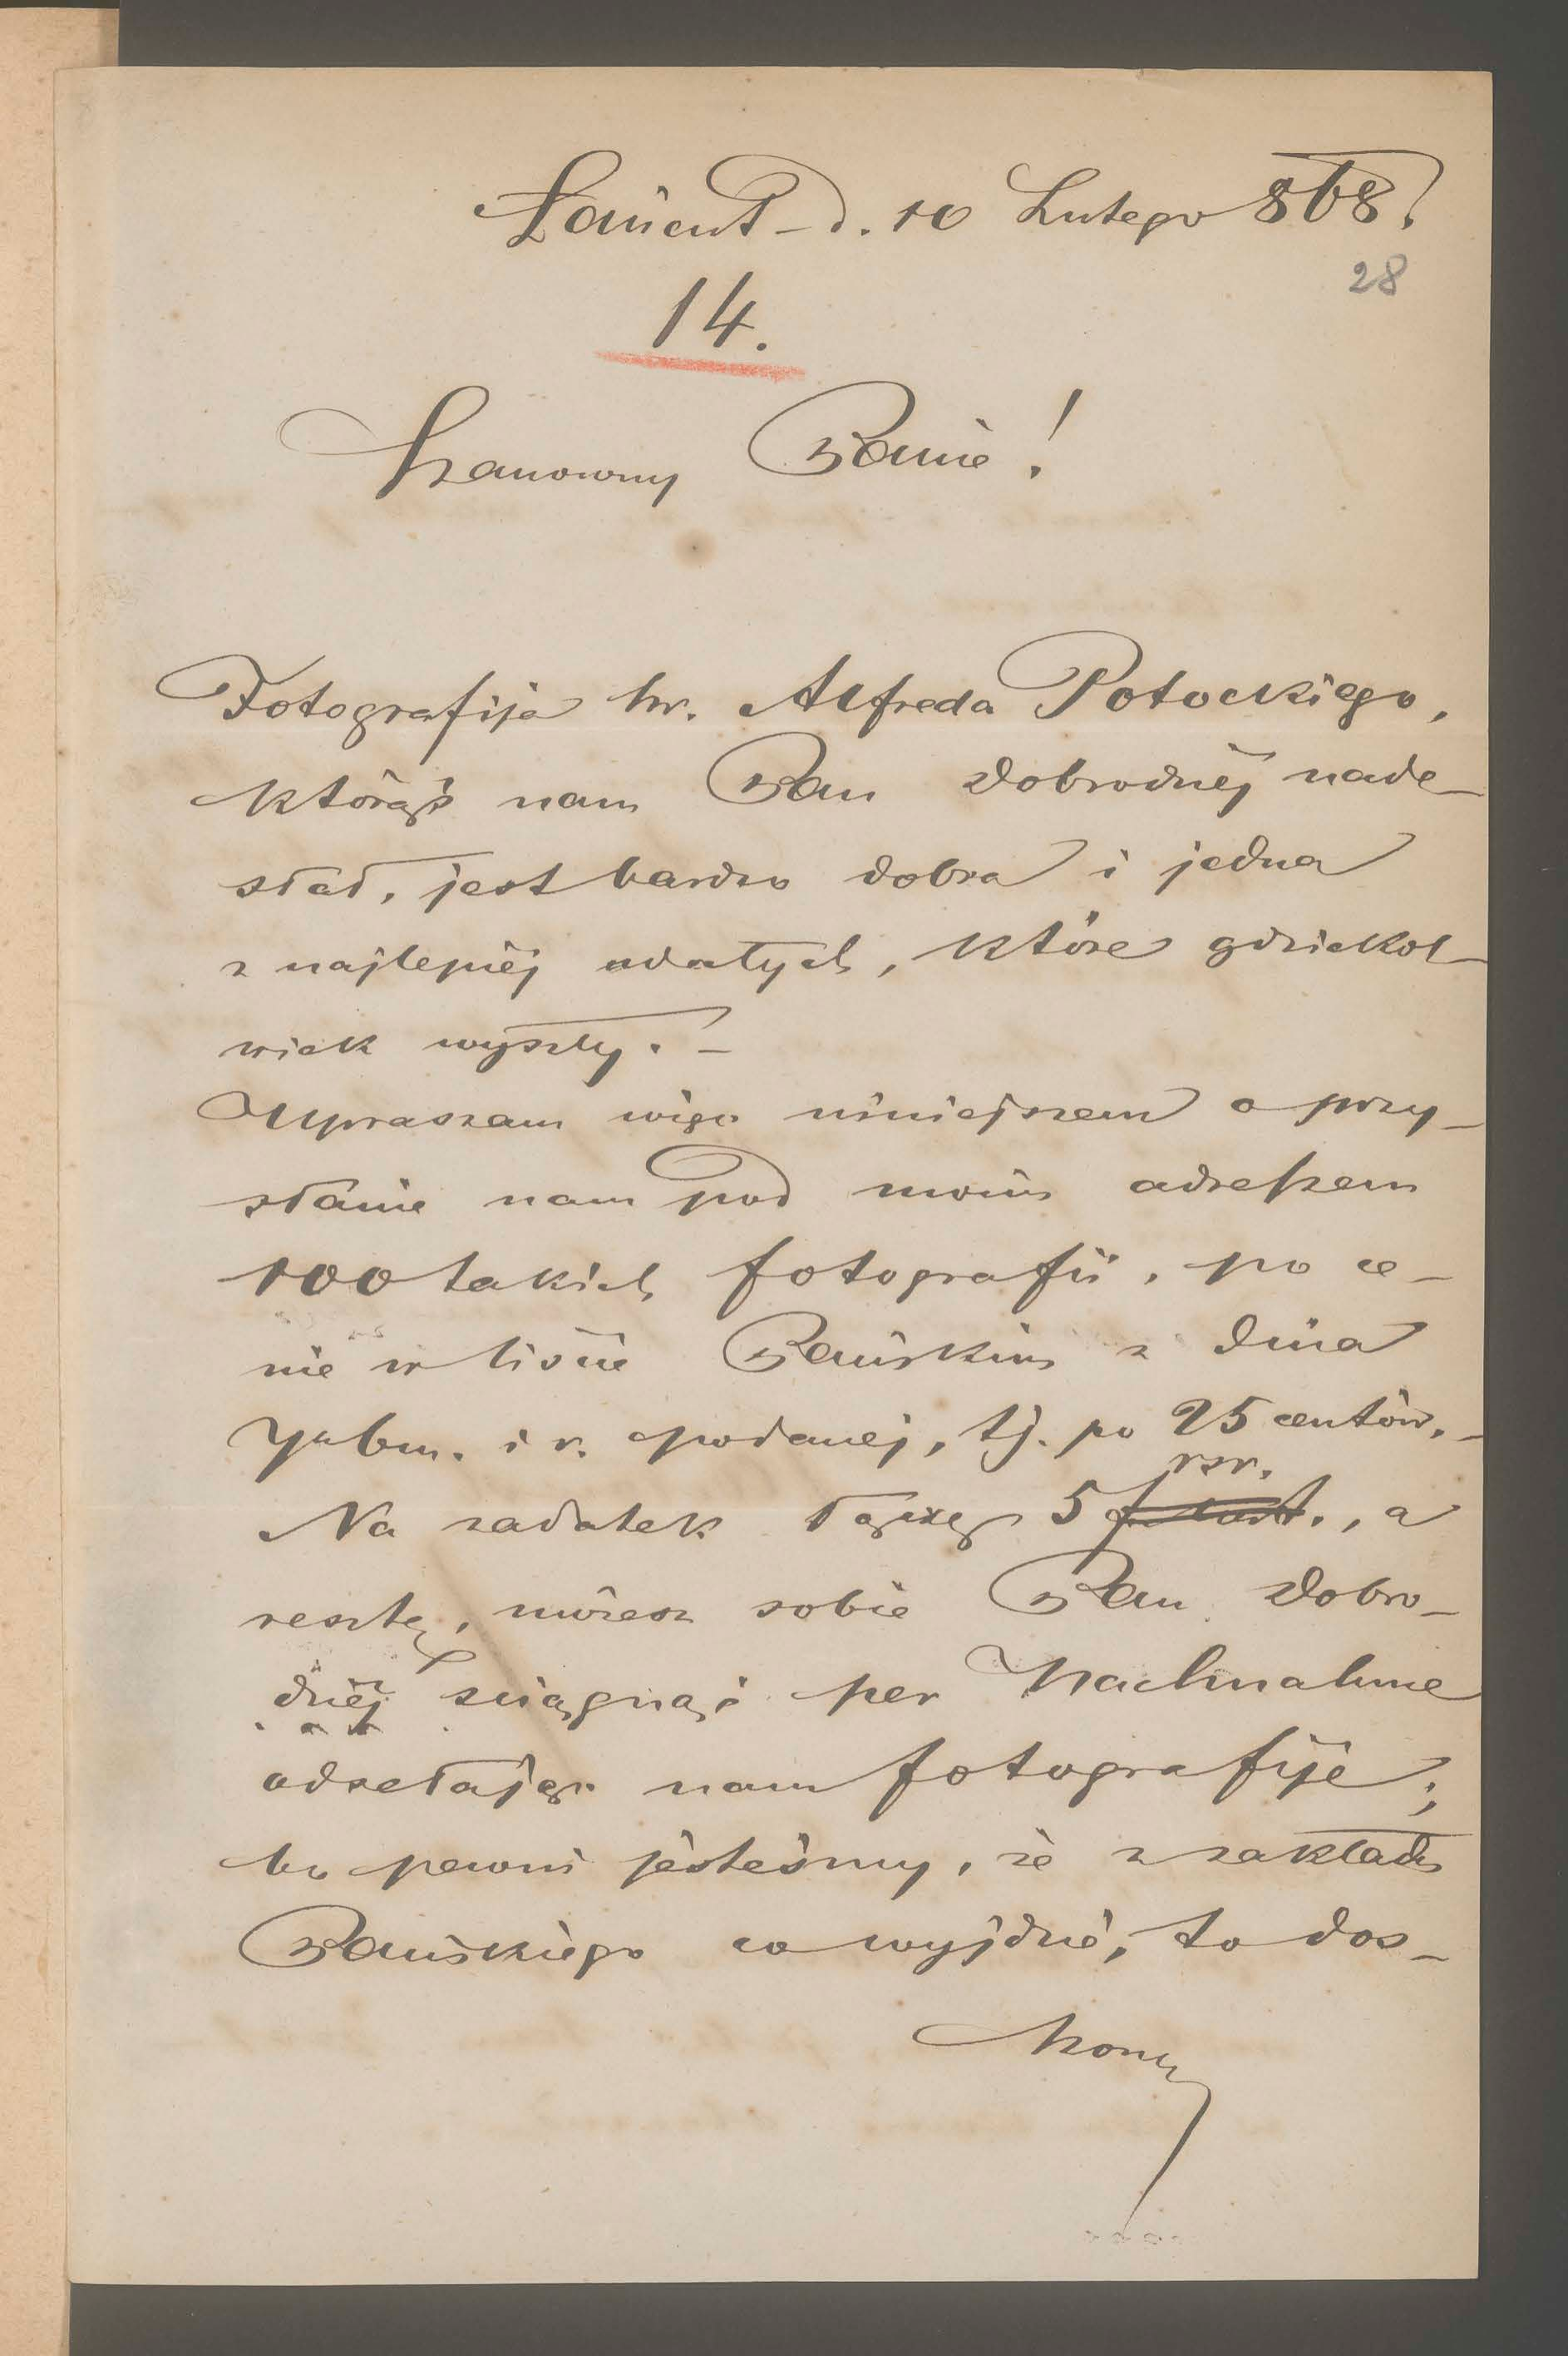 Łańcut – d. 10 Lutego 868.
28
14.
Szanowny Panie!
Fotografija hr. Alfreda Potockiego,
którąś nam Pan Dobrodziéj nade–
słał, jest bardzo dobra i jedna
z najlepiéj udatych, które gdziekol–
wiek wyszły. –
Upraszam więc niniejszem o przy–
słanie nam pod moim adressem
100 takich fotografii, po ce–
nie w liście Pańskim z dnia
7go bm. i r. podanéj, tj. po 25 centów. –
rsr.
Na zadatek łączę 5, a
resztę, możesz sobie Pan Dobro–
dziéj sciągnąć per Nachnahme
odsełając nam fotografije;
bo pewni jesteśmy, że z zakładu
Pańskiego co wyjdzie, to dos–
konały